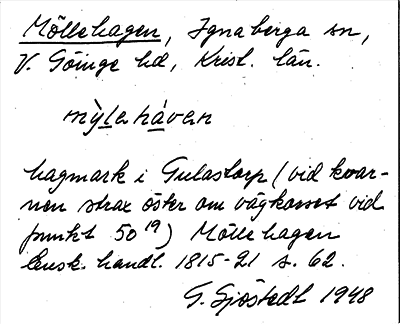 Möllehagen, Ignaberga sn,
V. Göinge hd, Krist. län.
mỳlehávan
hagmark i Gulastorp (vid kvar-
nen strax öster om vägkorset vid
punkt 50¹⁹) Möllehagen
Ensk. handl. 1815-21 s. 62.
G. Sjöstedt 1948